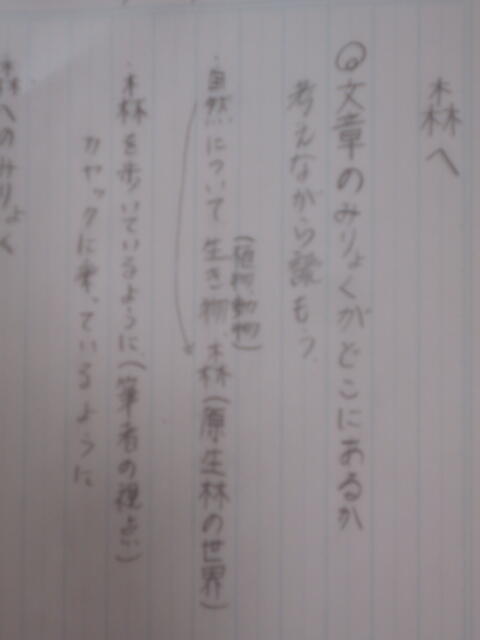 森へ
◎文章のみりょくがどこにあるか
考えながら読もう。
・自然について 生き物、森(原生林の世界)
(植物動物)
・森を歩いているように、(筆者の視点)
カヤックに乗っているように
森へのみりょく